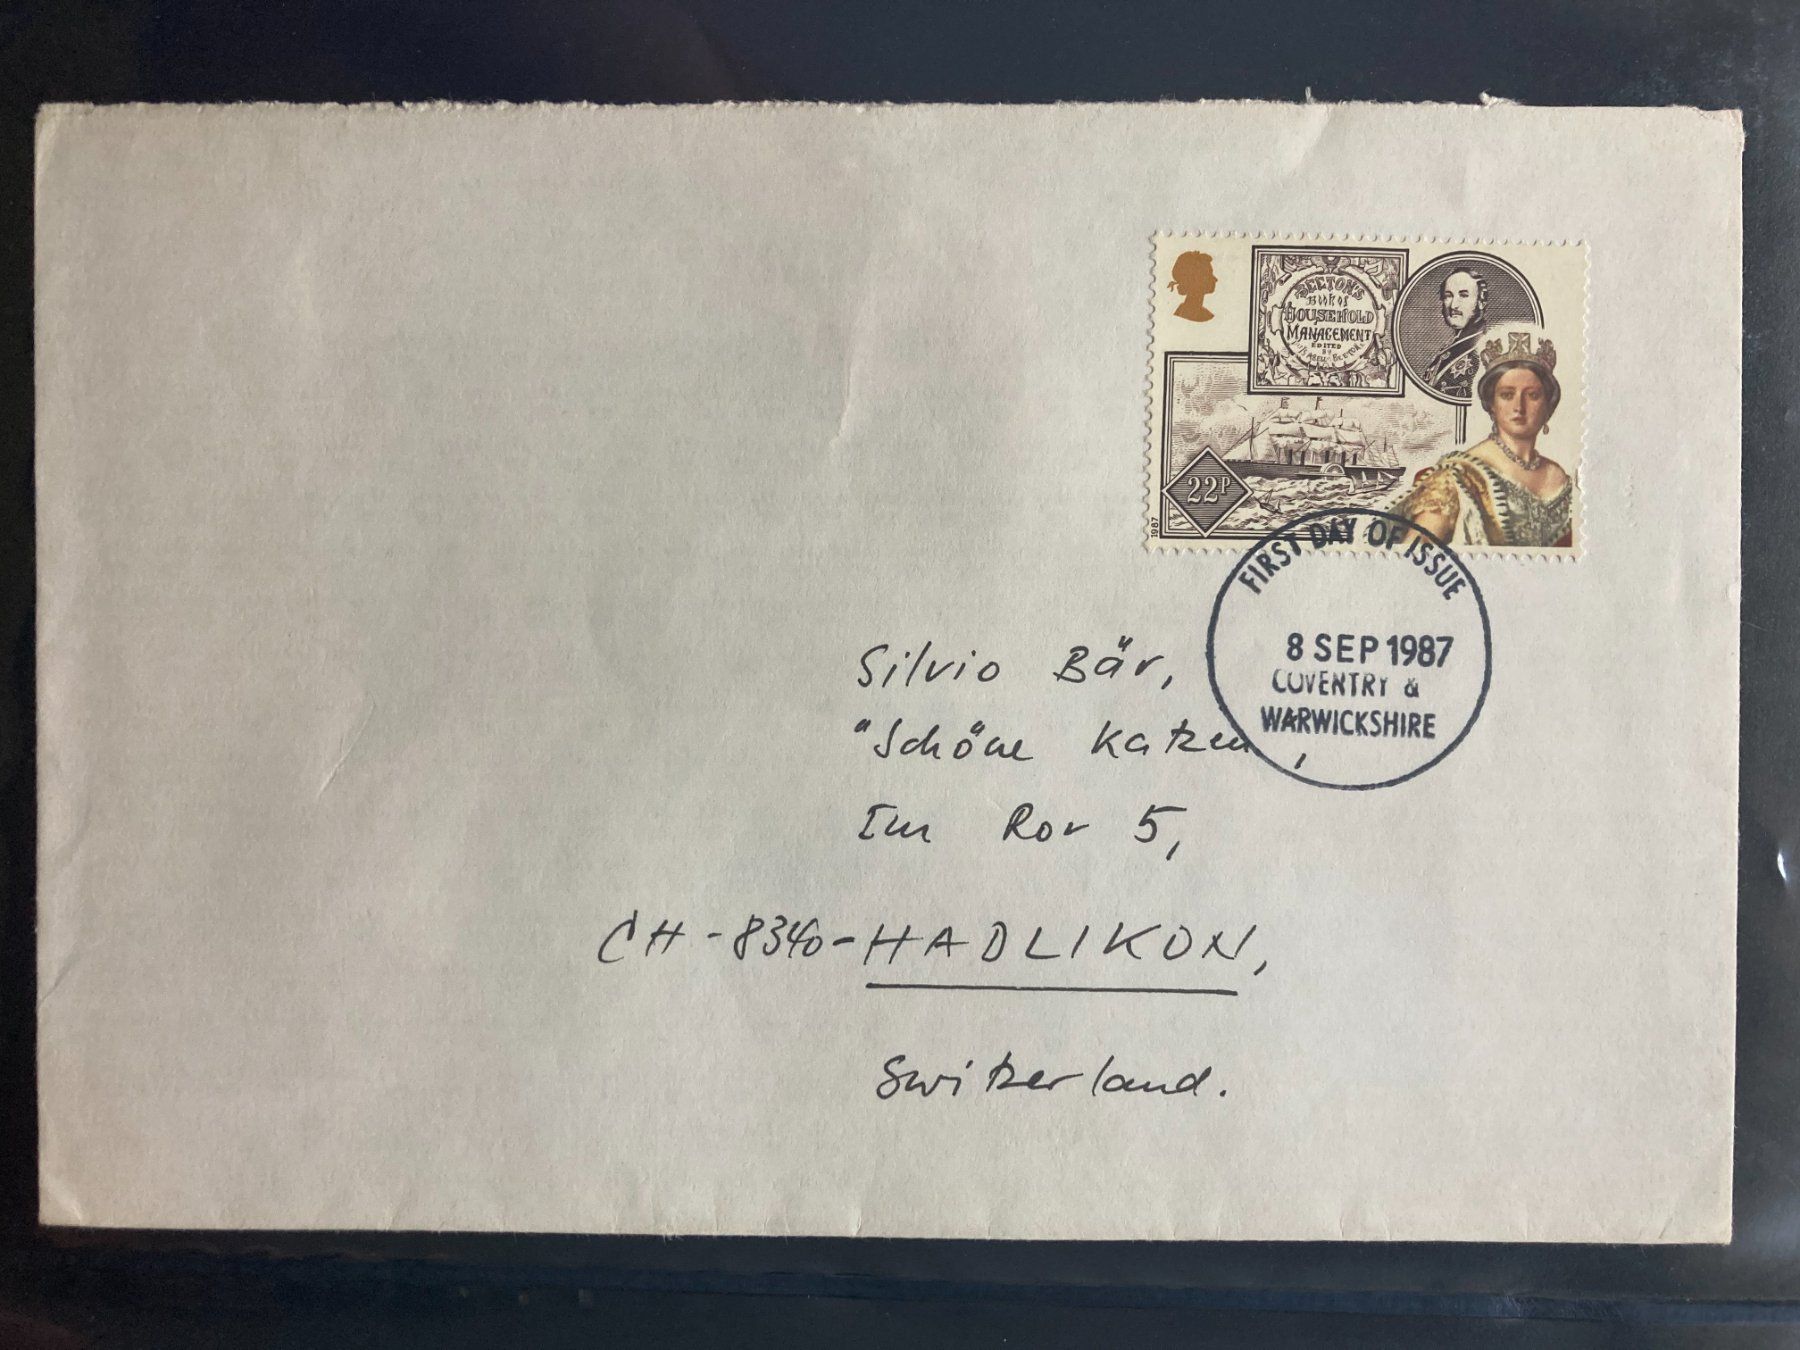 BEETON'S
Book of
HOUSEHOLD
MANAGEMENT
EDITED
BY
22P
1987
FIRST DAY OF ISSUE
8 SEP 1987
COVENTRY &
WARWICKSHIRE
Silvio Bär,
"Schöne Katzen,
Im Ror 5,
CH-8340-HADLIKON,
Switzerland.